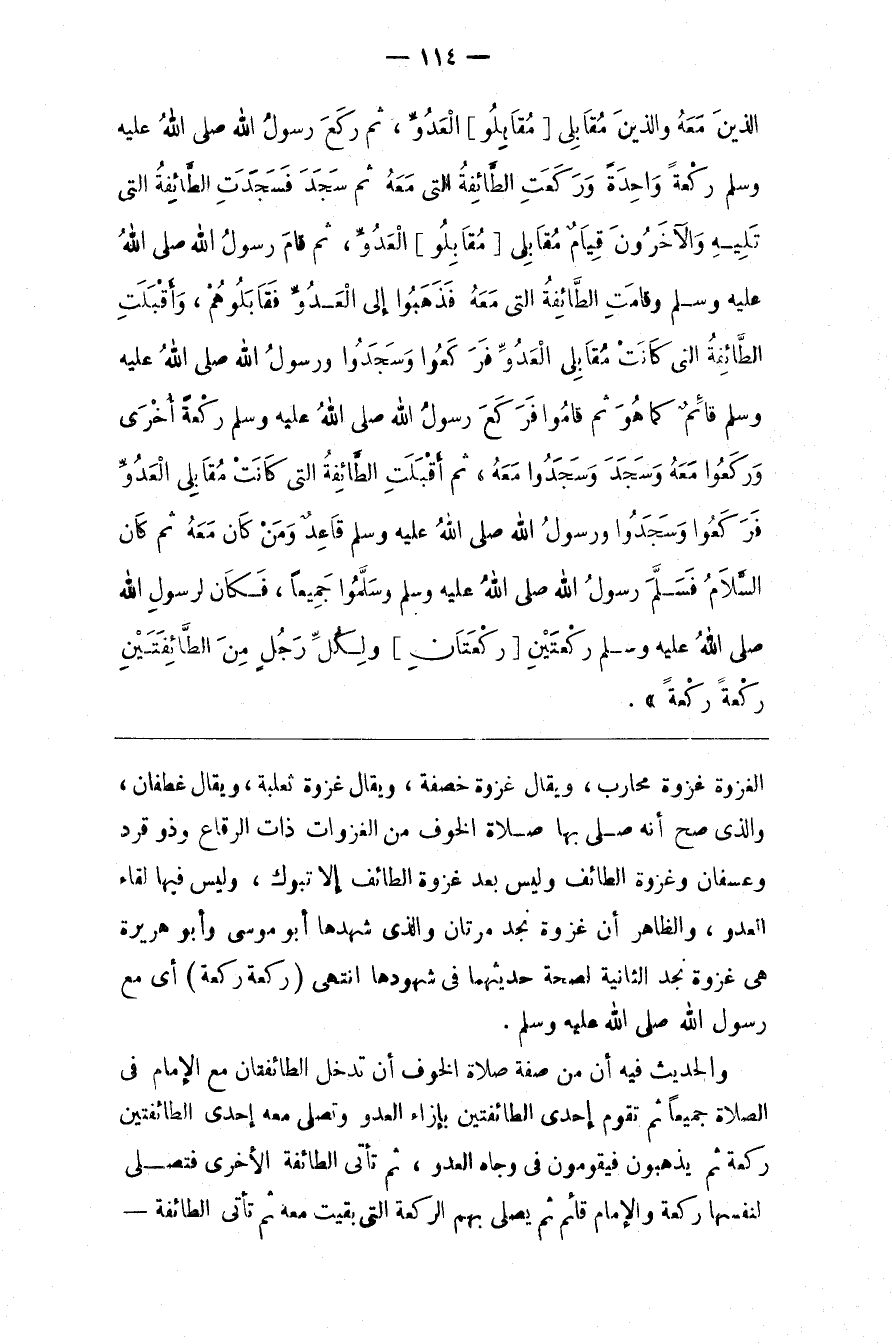 — ١١٤ —
الذينَ مَعَهُ والذينَ مُقَابِلِى [ مُقَابِلُو ] الْعَدُوِّ ، ثم ركَعَ رسولُ الله صلى اللهُ عليه
وسلم ركْعةً وَاحِدَةً وَرَكَعَتِ الطَّائِفةُ التى مَعَهُ ثم سجَدَ فَسَجَدَتِ الطَّائِفةُ التى
تَلِيـهِ وَالْآخَرُونَ قِيَامٌ مُقَابِلِى [ مُقَابِلُو ] الْعَدُوِّ ، ثم قامَ رسولُ الله صلى اللهُ
عليه وسـلم وقامَتِ الطَّائِفةُ التى مَعَهُ فَذَهَبُوا إلى الْعَـدُوِّ فَقَابَلُوهُمْ ، وَأَقْبَلَتِ
الطَّائِفةُ التى كَانَتْ مُقَابِلِى الْعَدُوِّ فَرَكَعُوا وَسَجَدُوا ورسولُ الله صلى اللهُ عليه
وسلم قائِمٌ كما هُوَ ثم قامُوا فَرَكَعَ رسولُ الله صلى اللهُ عليه وسلم ركْعةً أُخْرَى
وَركَعُوا مَعَهُ وَسَجَدَ وَسَجَدُوا مَعَهُ ، ثم أَقْبَلَتِ الطَّائِفةُ التى كَانَتْ مُقَابِلِى الْعَدُوِّ
فَرَكَعُوا وَسَجَدُوا ورسولُ الله صلى اللهُ عليه وسلم قَاعِدٌ وَمَنْ كَان مَعَهُ ثم كَان
السَّلَامُ فَسَـلَّمَ رسولُ الله صلى اللهُ عليه وسلم وسَلَّمُوا جَمِيعاً ، فَـكَان لرسولِ الله
صلى اللهُ عليه وسـلم ركْعَتَيْنِ [ ركْعَتَانِ ] ولِـكُلِّ رَجُلٍ مِنَ الطَّائِفَتَـيْنِ
ركْعةً ركْعةً » .
الغزوة غزوة محارب ، ويقال غزوة خصفة ، ويقال غزوة ثعلبة ، ويقال غطفان ،
والذى صح أنه صـلى بها صـلاة الخوف من الغزوات ذات الرقاع وذو قرد
وعسفان وغزوة الطائف وليس بعد غزوة الطائف إلا تبوك ، وليس فيها لقاء
العدو ، والظاهر أن غزوة نجد مرتان والذى شهدها أبو موسى وأبو هريرة
هى غزوة نجد الثانية لصحة حديثهما فى شهودها انتهى ( ركعة ركعة ) أى مع
رسول الله صلى الله عليه وسلم .
والحديث فيه أن من صفة صلاة الخوف أن تدخل الطائفتان مع الإمام فى
الصلاة جميعاً ثم تقوم إحدى الطائفتين بإزاء العدو وتصلى معه إحدى الطائفتين
ركعة ثم يذهبون فيقومون فى وجاه العدو ، ثم تأتى الطائفة الأخرى فتصـلى
لنفسها ركعة والإمام قائم ثم يصلى بهم الركعة التى بقيت معه ثم تأتى الطائفة —